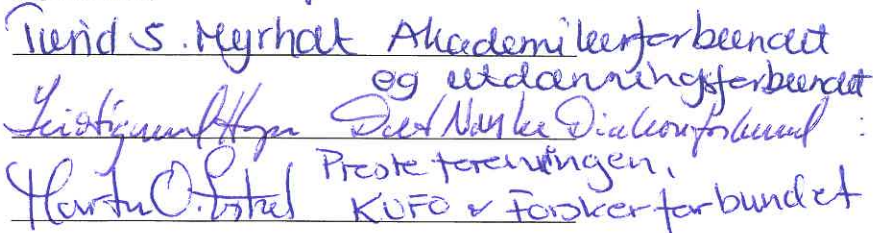 Turid S. Myrholt Akademikerforbundet
og utdanningsforbundet
Det Norske Diakonforbund
Presteforeningen,
Martin O. KUFO & Forskerforbundet